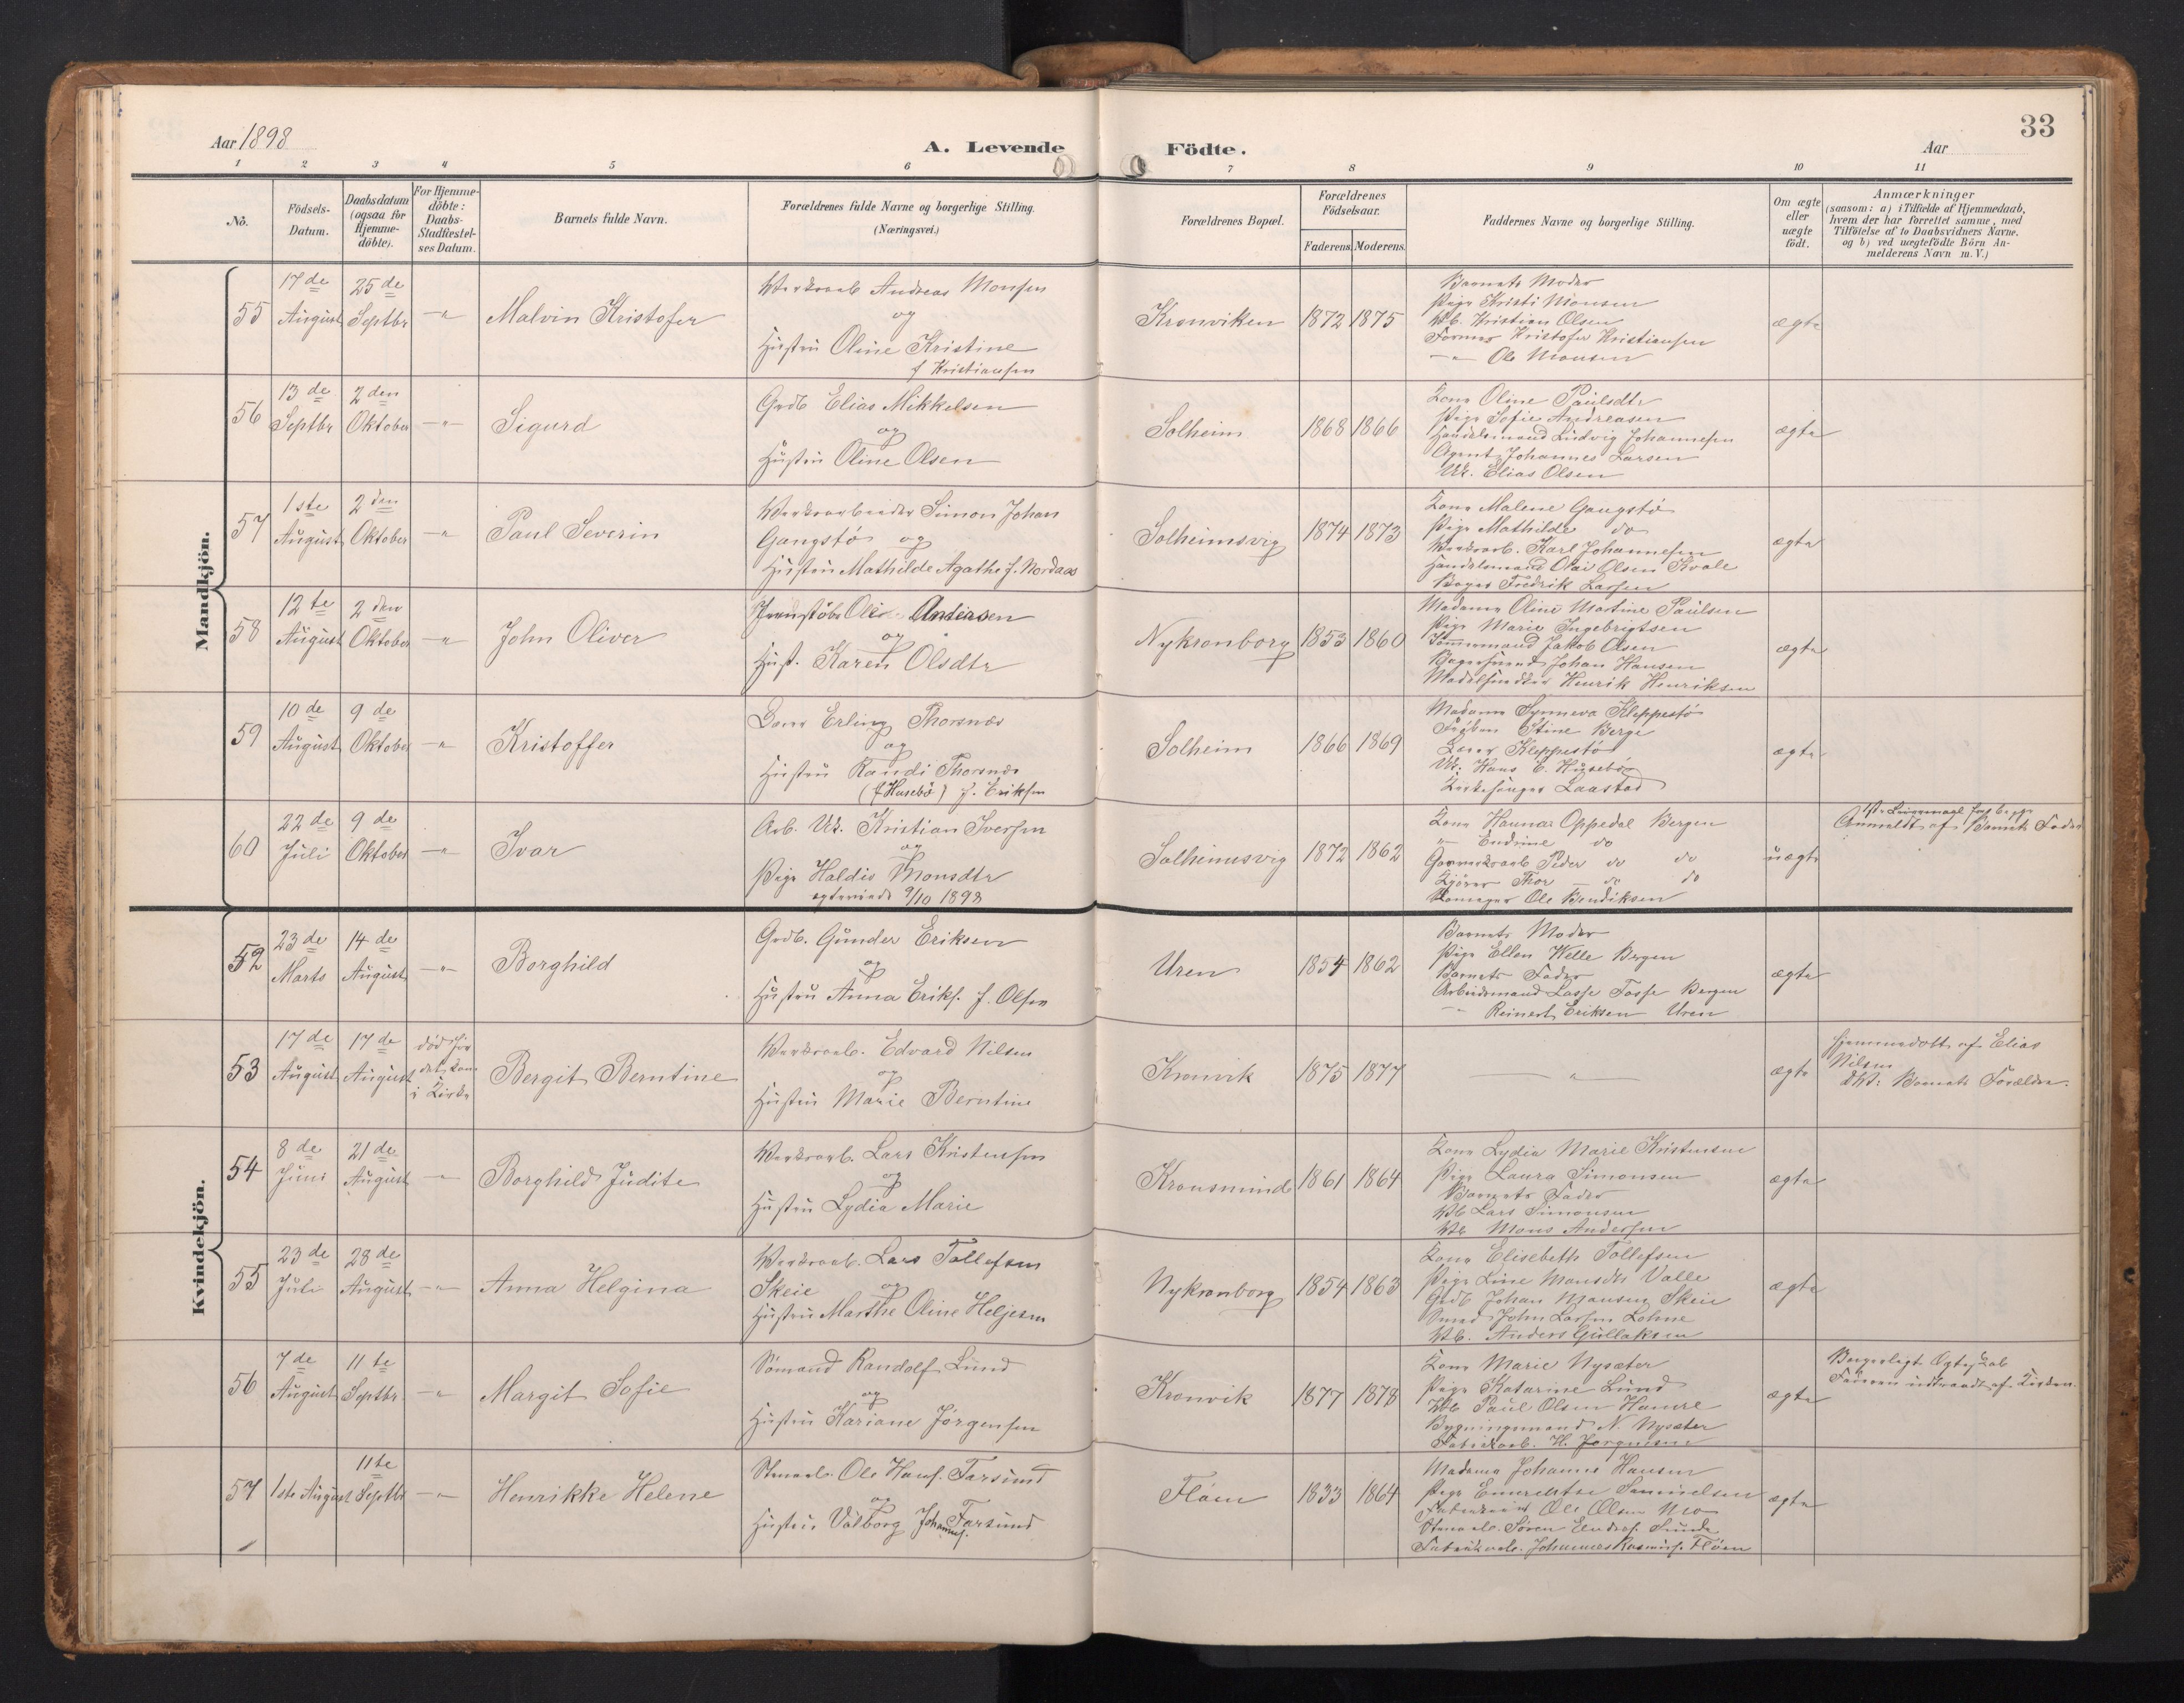 33
Aar 1898
A. Levende
Födte.
Aar
1 2 3 4 5 6 7 8 9 10 11
No.
Födsels-
Datum.
Daabsdatum
(ogsaa for
Hjemme-
döbte).
For Hjemme-
döbte:
Daabs-
Stadfæstel-
ses Datum.
Barnets fulde Navn.
Forældrenes fulde Navne og borgerlige Stilling.
(Næringsvei.)
Forældrenes Bopæl.
Forældrenes
Födselsaar.
Faderens. Moderens.
Faddernes Navne og borgerlige Stilling.
Om ægte
eller
uægte
födt.
Anmærkninger
(saasom: a) i Tilfælde af Hjemmedaab,
hvem der har forrettet samme, med
Tilföielse af to Daabsvidners Navne,
og b) ved uægtefödte Börn An-
melderens Navn m. V.)
Mandkjön.
55
17de
August
25de
Septbr
Malvin Kristofer
Andreas Monsen
og
Hustru Oline Kristine
f Kristiansen
Kronviken
1872 1875
Barnets Moder
Pige Kristi Monsen
Vb. Kristian Olsen
Former Kristofer Kristiansen
Ole Monsen
ægte
56
13de
Septbr
2den
Oktober
Sigurd
Grdb Elias Mikkelsen
og
Hustru Oline Olsen
Solheim
1868 1866
Kone Oline Paulsdtr
Pige Sofie Andreasen
Handelsmand Ludvig Johannesen
Agent Johannes Larsen
Uk. Elias Olsen
ægte
57
1ste
August
2den
Oktober
Paul Severin
Simon Johan
Gangstö og
Hustru Mathilde Agathe f. Nordaas
Solheimsvig
1874 1873
Kone Malene Gangstö
Pige Mathilde do
Karl Johannesen
Handelsmand Olai Olsen Kvale
Fredrik Larsen
ægte
58
12te
August
2den
Oktober
John Oliver
Andersen
og
Hust. Karen Olsdtr
Nykronborg
1853 1860
Madame Oline Martine Paulsen
Pige Marie Ingebrigtsen
Jakob Olsen
Johan Hansen
Henrik Henriksen
ægte
59
10de
August
9de
Oktober
Kristoffer
Erling Thorsnæs
og
Hustru Randi Thorsnæs
(f Husebö) f. Eriksen
Solheim
1866 1869
Madame Synneva Kleppestö
Fröken Stine Berge
Kleppestö
Uk. Hans E. Husebö
Kirkesanger Laastad
ægte
60
22de
Juli
9de
Oktober
Ivar
Arb. Uk. Kristian Iversen
og
Pige Haldis Monsdtr
9/10 1898
Solheimsvig
1872 1862
Kone Hanna Oppedal Bergen
Endrine do
Peder do do
Thor do do
Ole Bendiksen
uægte
Anmeldt af Barnets Fader
Kvindekjön.
52
23de
Marts
14de
August
Borghild
Grdb. Gunder Eriksen
og
Hustru Anna Eriks. f. Olsen
Uren
1854 1862
Barnets Moder
Pige Ellen Welle Bergen
Barnets Fader
Arbeidsmand Lasse Fosse Bergen
Reinert Eriksen Uren
ægte
53
17de
August
17de
August
död för
det kom
i Kirke
Bergit Berntine
Edvard Nilsen
og
Hustru Marie Berntine
Kronvik
1875 1877
ægte
Hjemmedöbt af Elias
Nilsen
Barnets Forældre.
54
8de
Juni
21de
August
Borghild Judite
Lars Kristensen
og
Hustru Lydia Marie
Kronsminde
1861 1864
Kone Lydia Marie Kristensen
Pige Laura Simonsen
Barnets Fader
Vb Lars Simonsen
Vb Mons Andersen
ægte
55
23de
Juli
28de
August
Anna Helgina
Lars Tollefsen
Skeie og
Hustru Marthe Oline Heljesen
Nykronborg
1854 1863
Kone Elisebeth Tollefsen
Pige Line Monsdtr Valle
Grdb Johan Monsen Skeie
Smed John Larsen Lohne
Vb. Anders Gullaksen
ægte
56
7de
August
11te
Septbr
Margit Sofie
Sömand Randolf Lund
og
Hustru Kariane Jörgensen
Kronvik
1877 1878
Kone Marie Nysæter
Pige Katarine Lund
Vb Paul Olsen Hamre
Bygningsmand N. Nysæter
Fabrikarb. H. Jørgensen
ægte
Borgerligt Ægteskab
Faderen udtraadt af Kirken.
57
1ste August
11te
Septbr
Henrikke Helene
Stenarb. Ole Hans. Farsund
og
Hustru Valborg Johannes. Farsund
Flöen
1833 1864
Madame Johanne Hansen
Pige Samuelsen
Ole Olsen Mo
Stenarb. Sören Enders. Sunde
Fabrikarb. Johannes Rasmus. Flöen
ægte